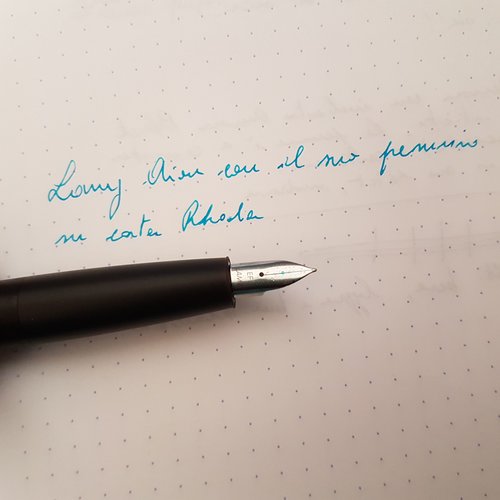 Lamy Aion con il suo pennino
su carta Rhodia
EF
LAMY